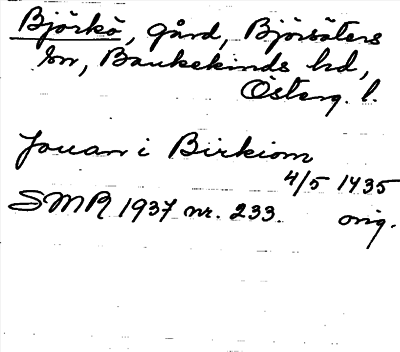 Björkö, gård, Björsäters
sn, Bankekinds hd,
Österg. l.
Jouan i Birkiom
4/5 1435
SMR 1937 nr. 233. orig.